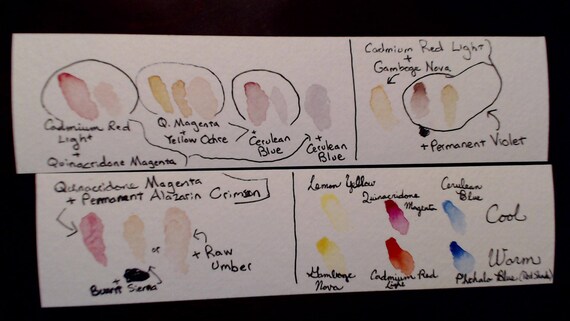 Cadmium Red
Light
+
Quinacridone Magenta
Q. Magenta
+
Yellow Ochre
+
Cerulean
Blue
+
Cerulean
Blue
Cadmium Red Light
+
Gamboge Nova
+ Permanent Violet
Quinacridone Magenta
+ Permanent Alazarin Crimson
+
Burnt Sienna
or
+ Raw
Umber
Lemon Yellow
Quinacridone
Magenta
Cerulean
Blue
Cool
Gamboge
Nova
Cadmium Red
Light
Phthalo Blue (Red Shade)
Warm